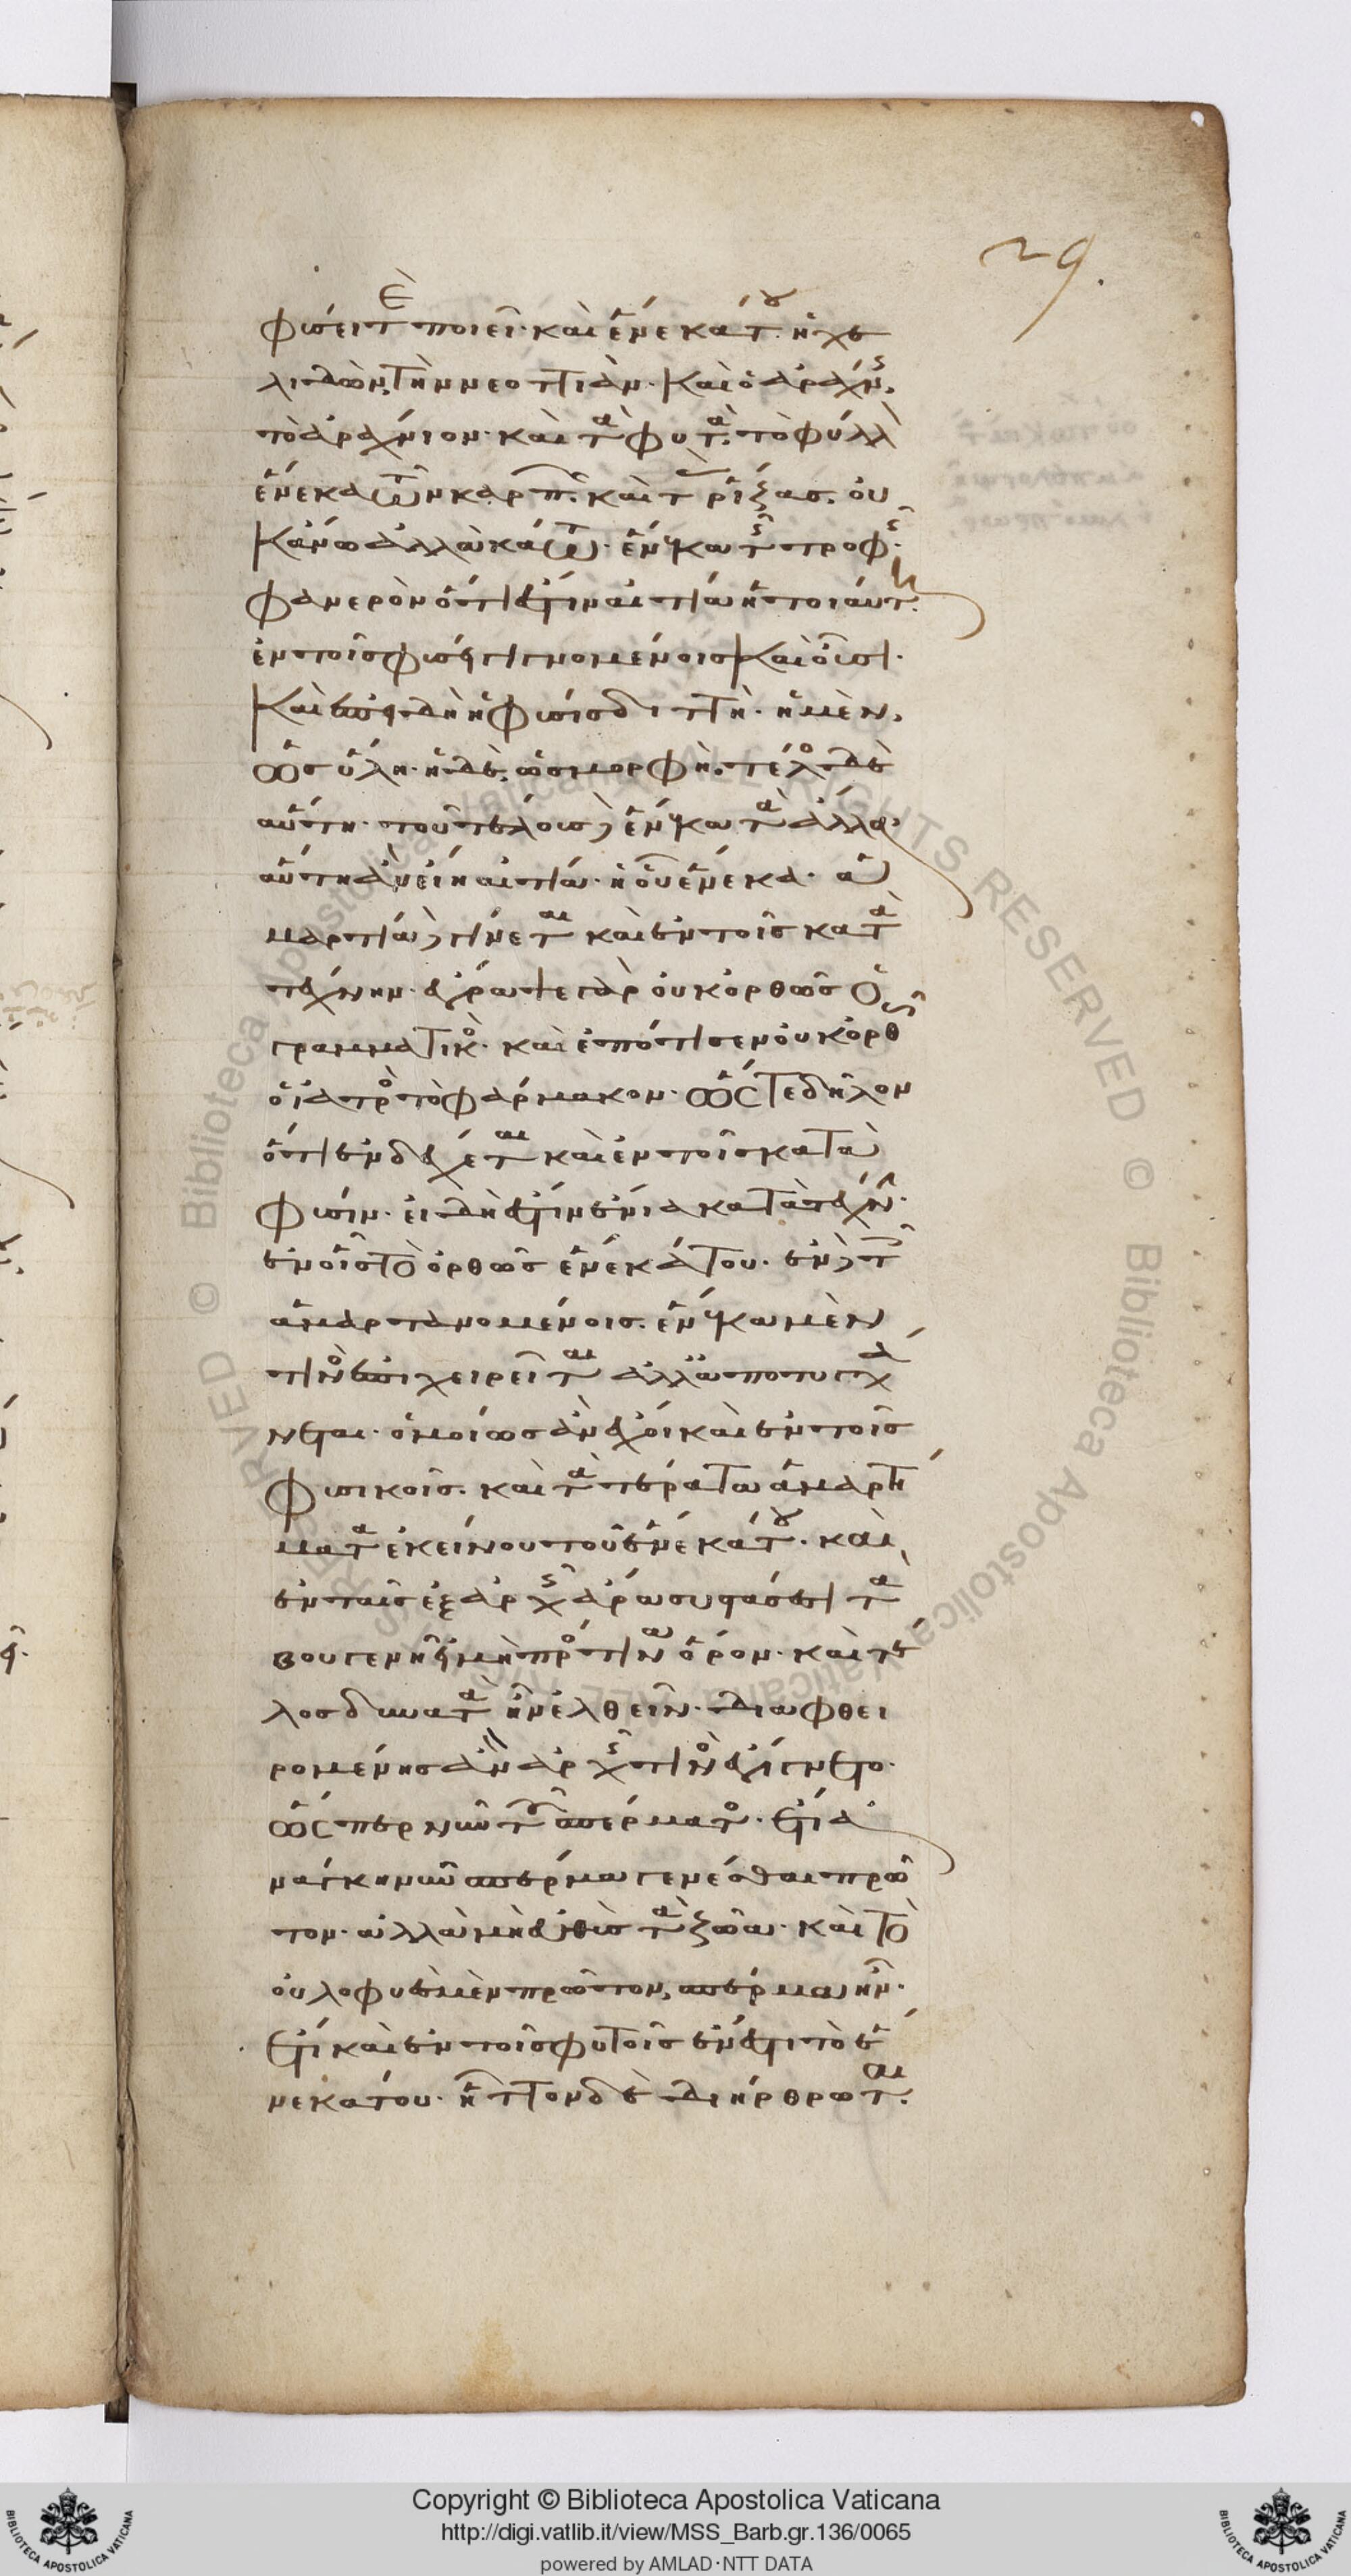 29.
φύσει τε ποιεῖ· καὶ ἕνεκά του· ἡ χε
λιδὼν, τὴν νεοττιὰν· καὶ ὁ ἀράχνης,
τὸ ἀράχνιον· καὶ τὰ φυτὰ· τὸ φύλλα
ἕνεκα τῶν καρπῶν· καὶ τὰς ῥίζας· οὐκ
ἄνω ἀλλὰ κάτω· ἕνεκα τῆς τροφῆς·
φανερὸν ὅτι ἐστὶν αἰτία ἡ τοιαύτη
ἐν τοῖς φύσει γινομένοις καὶ οὖσι·
καὶ ἐπεὶ δὴ ἡ φύσις διττὴ· ἡ μὲν,
ὡς ὕλη· ἡ δὲ, ὡς μορφὴ, τέλος δὲ
αὕτη· τοῦ τέλους δὲ ἕνεκα τὰ ἄλλα·
αὕτη ἂν εἴη αἰτία· ἡ οὗ ἕνεκα· ἁ
μαρτία δὲ γίνεται καὶ ἐν τοῖς κατὰ
τέχνην· ἔγραψε γὰρ οὐκ ὀρθῶς ὁ
γραμματικὸς· καὶ ἐπότισεν οὐκ ὀρθῶς
ὁ ἰατρὸς τὸ φάρμακον· ὥστε δῆλον
ὅτι ἐνδέχεται καὶ ἐν τοῖς κατὰ
φύσιν· εἰ δὴ ἐστὶν ἔνια κατὰ τέχνην·
ἐν οἷς τὸ ὀρθῶς ἕνεκά του· ἐν δὲ τοῖς
ἁμαρτανομένοις· ἕνεκα μὲν
τινὸς ἐπιχειρεῖται ἀλλ' ἀποτυγχά
νεται· ὁμοίως ἂν ἔχοι καὶ ἐν τοῖς
φυσικοῖς· καὶ τὰ τέρατα ἁμαρτή
ματα ἐκείνου τοῦ ἕνεκά του· καὶ
ἐν ταῖς ἐξ ἀρχῆς ἄρα συστάσεσι τὰ
βουγενῆ εἰ μὴ πρός τινα ὅρον· καὶ τέ
λος δυνατὰ ἦν ἐλθεῖν· διαφθει
ρομένης ἂν ἀρχῆς τινὸς ἐγίγνετο·
ὥσπερ νῦν τοῦ σπέρματος· ἔτι ἀ
νάγκη νῦν σπέρμα γενέσθαι πρῶ
τον· ἀλλὰ μὴ εὐθὺς τὰ ζῶα· καὶ τὸ
οὐλοφυὲς μὲν πρῶτον, σπέρμα ἦν·
ἔτι καὶ ἐν τοῖς φυτοῖς ἔνεστι τὸ ἕ
νεκά του· ἧττον δὲ διήρθρωται.
Copyright © Biblioteca Apostolica Vaticana
http://digi.vatlib.it/view/MSS_Barb.gr.136/0065
powered by AMLAD·NTT DATA